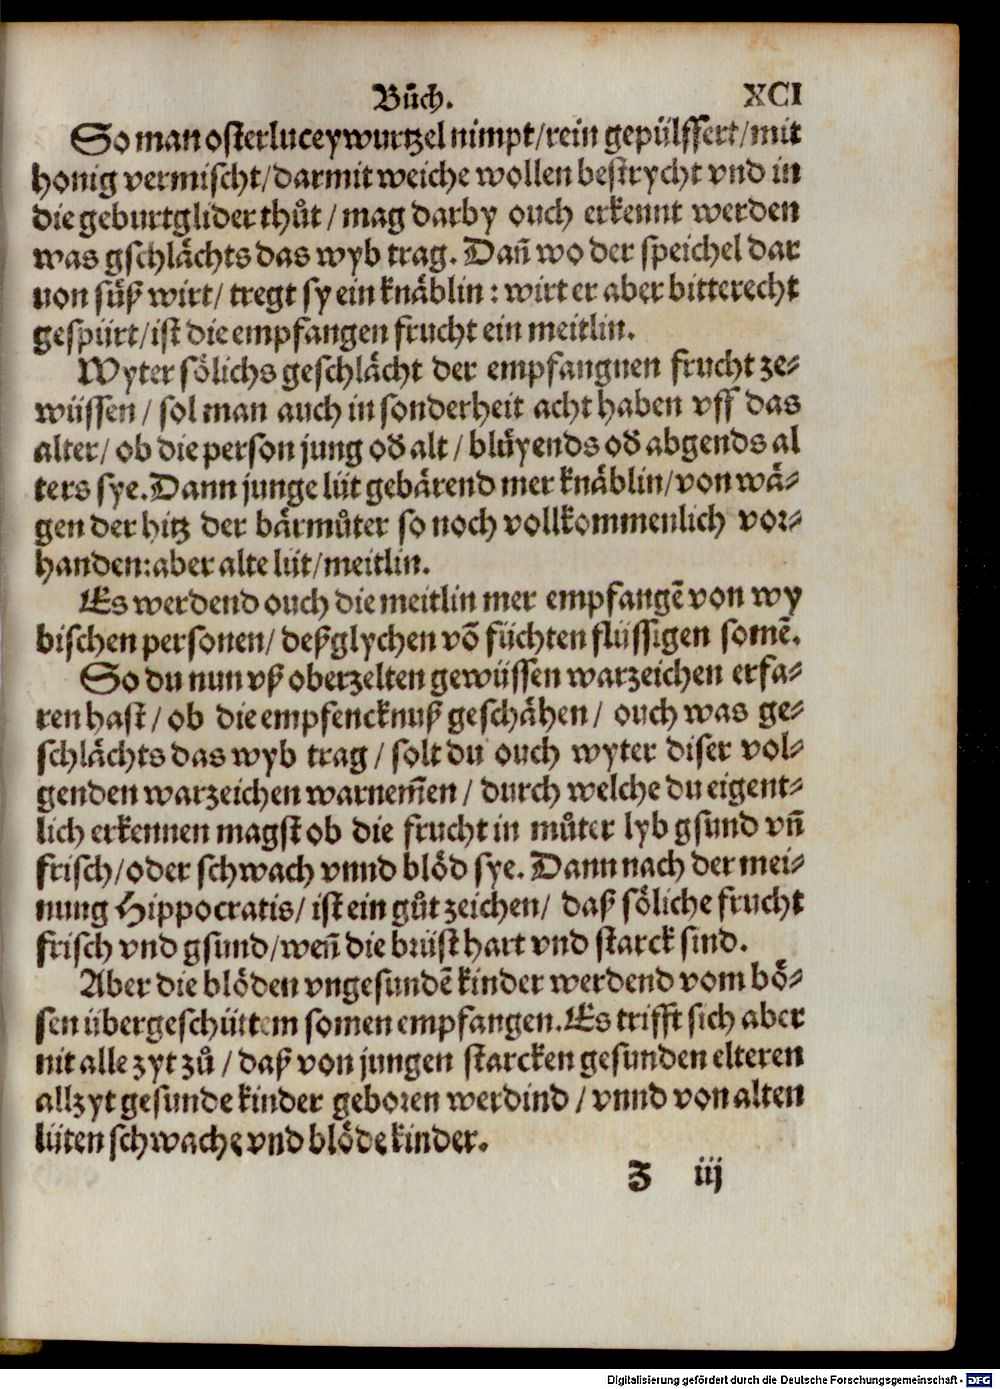 Bůch. XCI
So man osterluceywurtzel nimpt/rein gepülffert/mit
honig vermischt/darmit weiche wollen bestrycht vnd in
die geburtglider thůt / mag darby ouch erkennt werden
was gschlächts das wyb trag. Dañ wo der speichel dar
von süß wirt/ tregt sy ein knäblin : wirt er aber bitterecht
gespürt/ist die empfangen frucht ein meitlin.
Wyter sölichs geschlächt der empfangnen frucht ze-
wüssen / sol man auch in sonderheit acht haben vff das
alter/ ob die person jung oď alt / blüyends oď abgends al
ters sye. Dann junge lüt gebärend mer knäblin/von wä-
gen der hitz der bärmůter so noch vollkommenlich vor-
handen:aber alte lüt/meitlin.
Es werdend ouch die meitlin mer empfangẽ von wy
bischen personen/ deßglychen võ füchten flüssigen somẽ.
So du nun vß oberzelten gewüssen warzeichen erfa-
ren hast / ob die empfencknuß geschähen/ ouch was ge-
schlächts das wyb trag / solt du ouch wyter diser vol-
genden warzeichen warnem̃en / durch welche du eigent-
lich erkennen magst ob die frucht in můter lyb gsund vñ
frisch/oder schwach vnnd blöd sye. Dann nach der mei-
nung Hippocratis/ ist ein gůt zeichen/ daß söliche frucht
frisch vnd gsund/weñ die brüst hart vnd starck sind.
Aber die blöden vngesundẽ kinder werdend vom bö-
sen übergeschüttem somen empfangen. Es trifft sich aber
nit alle zyt zů / daß von jungen starcken gesunden elteren
allzyt gesunde kinder geboren werdind / vnnd von alten
lüten schwache vnd blöde kinder.
Z iij
Digitalisierung gefördert durch die Deutsche Forschungsgemeinschaft - DFG